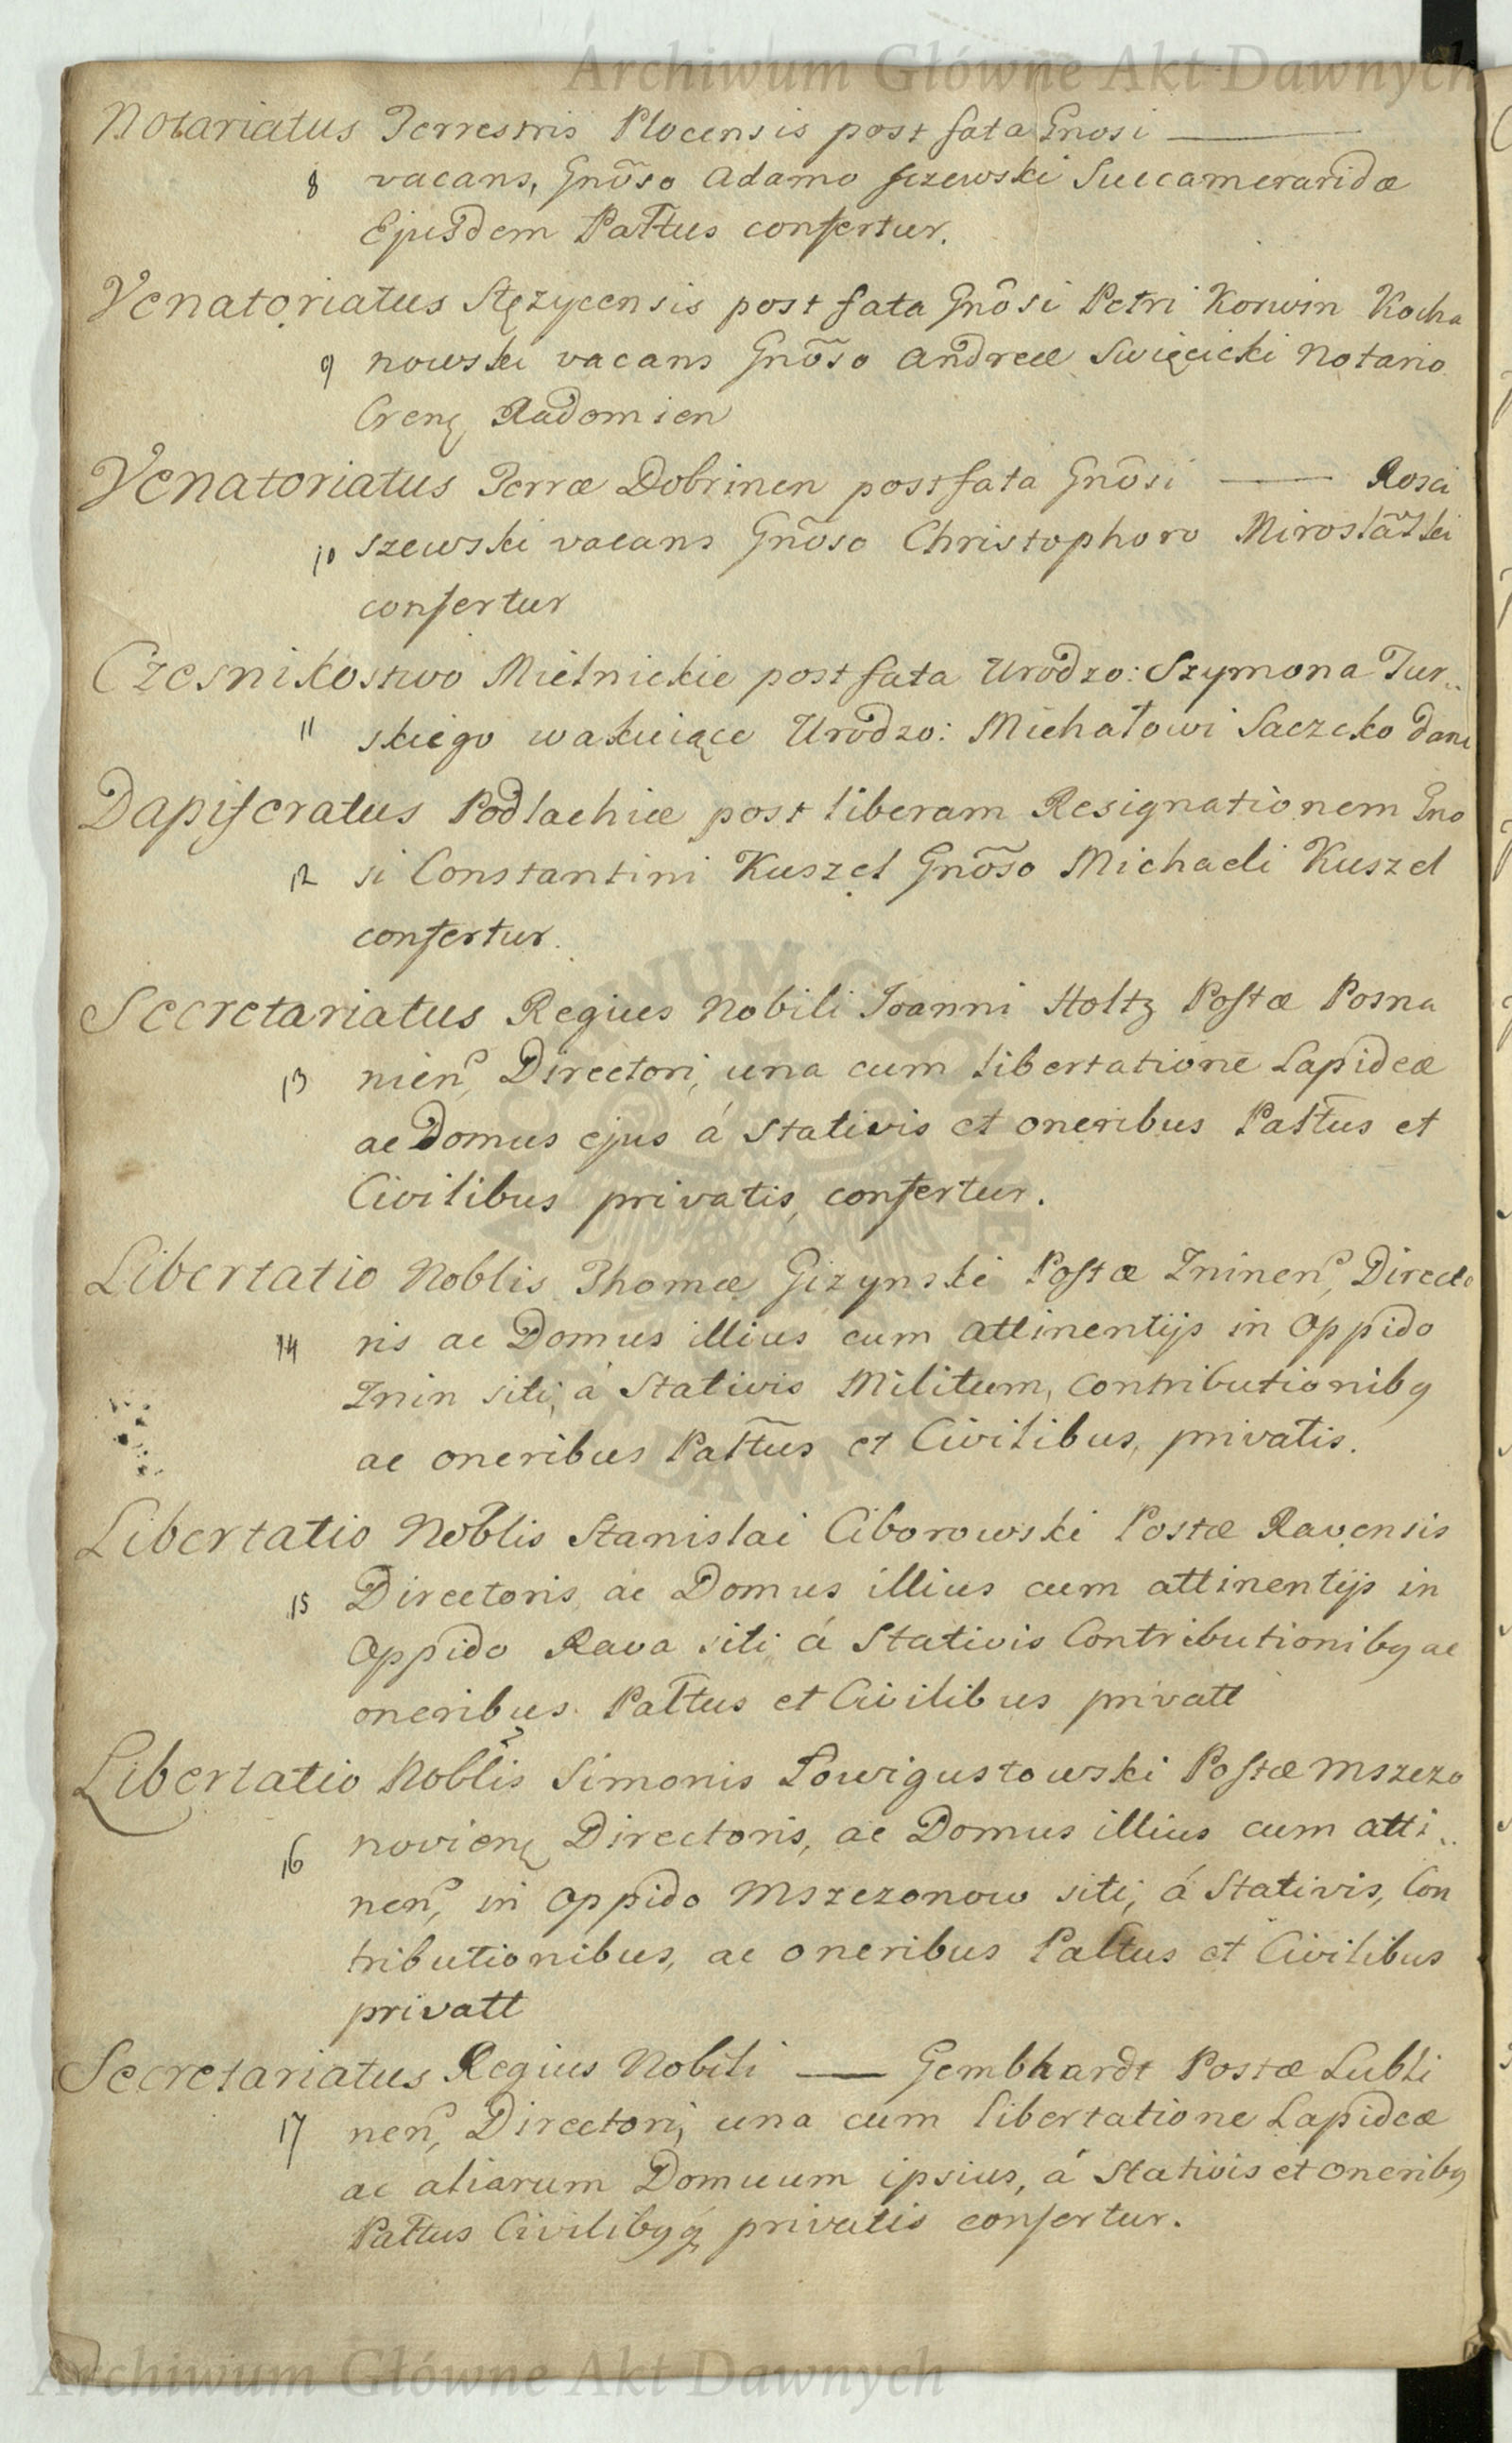 Archiwum Główne Akt Dawnych
Notariatus Terrestris Plocensis post fata Gnosi ———
8 vacans, Gnõso Adamo Jizewski Succameraridæ
Ejusdem Pałtus confertur.
Venatoriatus Stęzycensis post fata Gnõsi Petri Korwin Kocha
9 nowski vacans Gnõso Andreæ Swięcicki Notario
Cren̨ Radomien
Venatoriatus Terræ Dobrinen post fata Gnõsi —— Rosci
10 szewski vacans Gnõso Christophoro Mirosław̃ski
confertur
Czesnikostwo Mielnickie post fata Urodzo: Szymona Tur..
11 skiego wakuiące Urodzo: Michałowi Saczcko dane
Dapiferatus Podlachiæ post liberam Resignationem Gno
12 si Constantini Kuszel Gnõso Michaeli Kuszel
confertur.
Secretariatus Regius Nobili Joanni Holtz Postæ Posna
13 nien, Directori, una cum libertatione Lapideæ
ac Domus ejus á Stativis et oneribus Pałtus et
Civilibus privatis, confertur.
Libertatio Noblis Thomæ Gizynski Postæ Zninen, Directo
14 ris ac Domus illius cum attinentijs in Oppido
Znin siti, á Stativis Militum, Contributionibq
ac oneribus Pałtus et Civilibus, privatis.
Libertatio Noblis Stanislai Ciborowski Postæ Ravensis
15 Directoris ac Domus illius cum attinentijs in
Oppido Rava siti á Stativis Contributionibq ac
oneribus Pałtus et Civilibus privatt
Libertatio Noblis Simonis Łowigustowski Postæ Mszczo
16 novien̨ Directoris, ac Domus illius cum atti..
nen, in Oppido Mszczonow siti, á Stativis, Con
tributionibus, ac oneribus Pałtus et Civilibus
privatt
Secretariatus Regius Nobili —— Gembhardt Postæ Lubli
17 nen, Directori, una cum libertatione Lapideæ
ac aliarum Domuum ipsius, á Stativis et Oneribq
Pałtus Civilibqq̨ privatis confertur.
Archiwum Główne Akt Dawnych